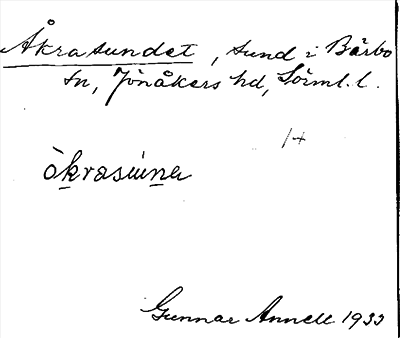 Åkrasundet, sund i Bärbo
sn, Jönåkers hd, Sörml. l.
1+
òkrasúna
Gunnar Annell 1933